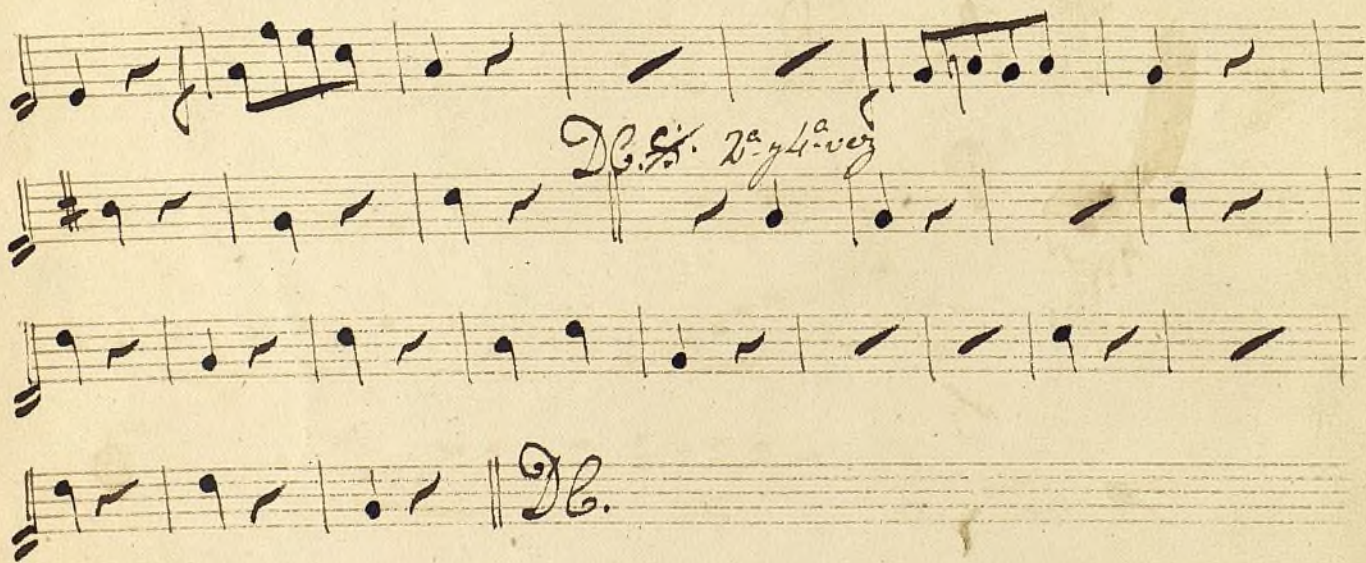 DC. 𝄋. 2ª y 4ª vez
DC.